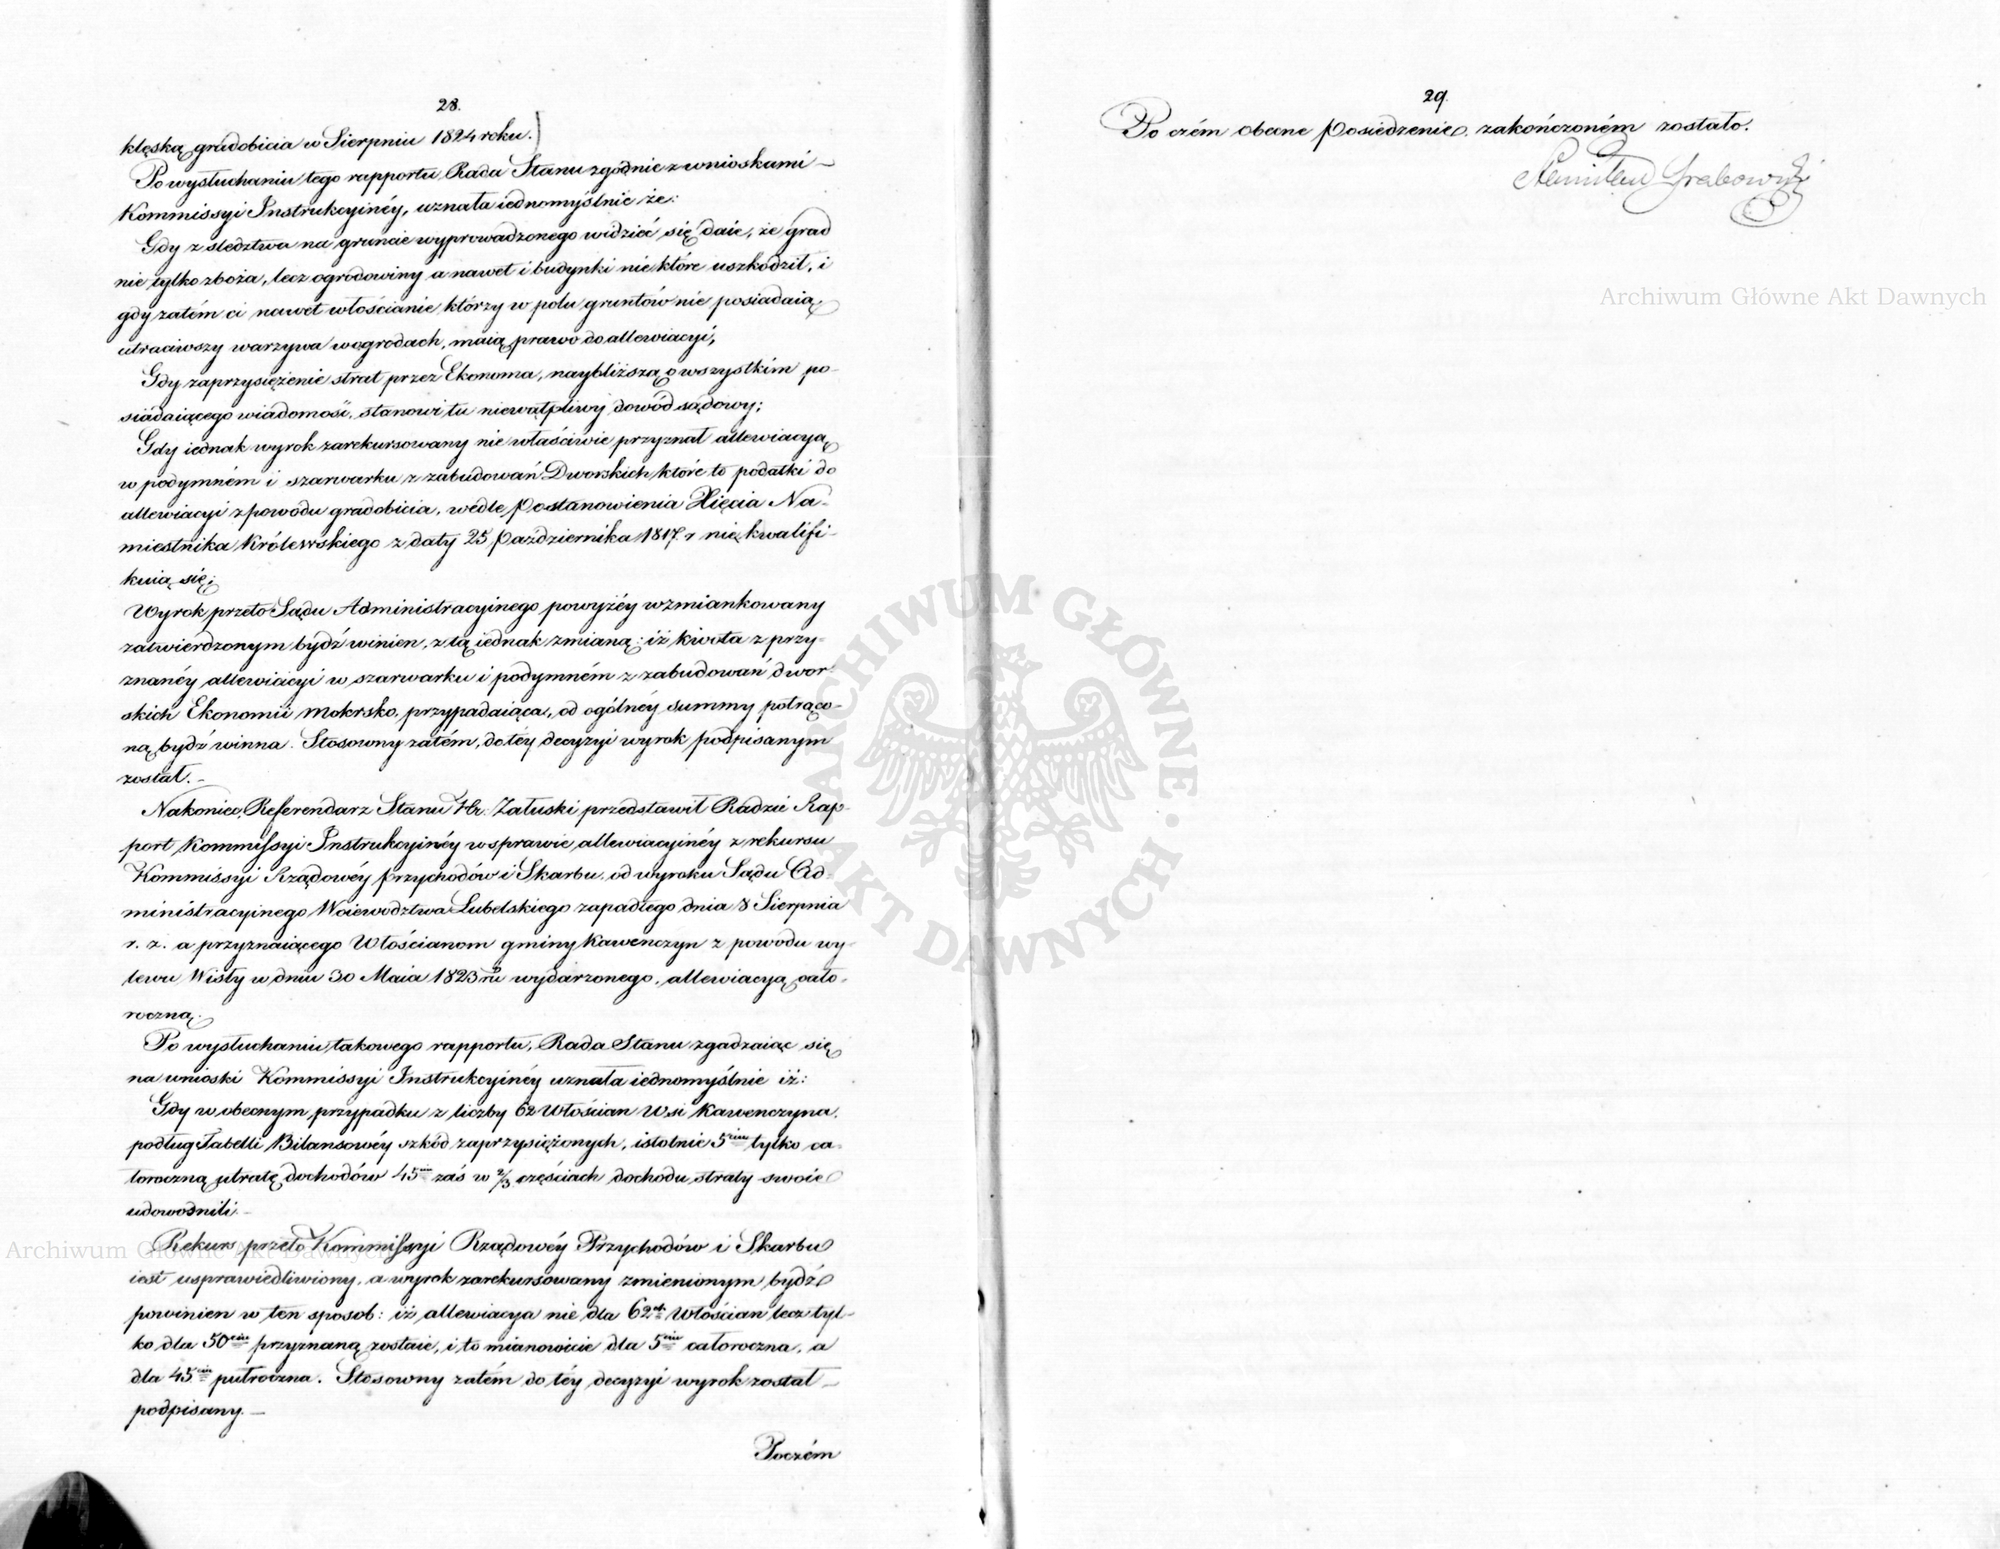 28.
klęską gradobicia w Sierpniu 1824 roku.
Po wysłuchaniu tego rapportu Rada Stanu zgodnie z wnioskami
Kommissyi Instrukcyinéy, uznała iednomyślnie że:
Gdy z sledztwa na gruncie wyprowadzonego widzieć się daie, że grad
nie tylko zboża, lecz ogrodowiny a nawet i budynki niektóre uszkodził, i
gdy zatém ci nawet włościanie którzy w polu gruntów nie posiadaią
utraciwszy warzywa w ogrodach, maią prawo do allewiacyi;
Gdy zaprzysiężenie strat przez Ekonoma, naybliższą o wszystkim po-
siadaiącego wiadomość, stanowi tu niewątpliwy dowód sądowy;
Gdy iednak wyrok zarekursowany nie właściwie przyznał allewiacyą
w podymném i szarwarku z zabudowań Dworskich które to podatki do
allewiacyi z powodu gradobicia, wedle Postanowienia Xięcia Na-
miestnika Królewskiego z daty 25 Października 1817 r nie kwalifi-
kuią się;
Wyrok przeto Sądu Administracyinego powyżéy wzmiankowany
zatwierdzonym bydź winien, z tą iednak zmianą: iż kwota z przy-
znanéy allewiacyi w szarwarku i podymném z zabudowań dwor-
skich Ekonomii Mokrsko, przypadaiąca, od ogólnéy summy potrąco-
ną bydź winna. Stosowny zatém, do téy decyzyi wyrok podpisanym
został.
Nakoniec, Referendarz Stanu Hr. Załuski przedstawił Radzie Rap-
port Kommissyi Instrukcyinéy w sprawie allewiacyinéy z rekursu
Kommissyi Rządowéy Przychodów i Skarbu, od wyroku Sądu Ad-
ministracyinego Woiewództwa Lubelskiego zapadłego dnia 8 Sierpnia
r. z. a przyznaiącego Włościanom gminy Kawenczyn z powodu wy-
lewu Wisły w dniu 30 Maia 1823 ru wydarzonego, allewiacyą cało-
roczną.
Po wysłuchaniu takowego rapportu, Rada Stanu zgadzaiąc się
na wnioski Kommissyi Instrukcyinéy uznała iednomyślnie iż:
Gdy w obecnym przypadku z liczby 62 Włościan Wsi Kawenczyna,
podług Tabelli Bilansowéy szkód zaprzysiężonych, istotnie 5ciu tylko ca-
łoroczną utratę dochodów 45ciu zaś w 2/3 częściach dochodu straty swoie
udowodnili
Rekurs przeto Kommissyi Rządowéy Przychodów i Skarbu
iest usprawiedliwiony, a wyrok zarekursowany zmienionym bydź
powinien w ten sposob: iż allewiacya nie dla 62ch Włościan lecz tyl-
ko dla 50ciu przyznaną zostaie, i to mianowicie dla 5ciu całoroczna, a
dla 45ciu pułroczna. Stosowny zatém do téy decyzyi wyrok został
podpisany.
Poczém
29.
Po czém obecne Posiedzenie zakończoném zostało.
Stanisław Grabowski
Archiwum Główne Akt Dawnych
Archiwum Główne Akt Dawnych
ARCHIWUM GŁÓWNE · AKT DAWNYCH ·